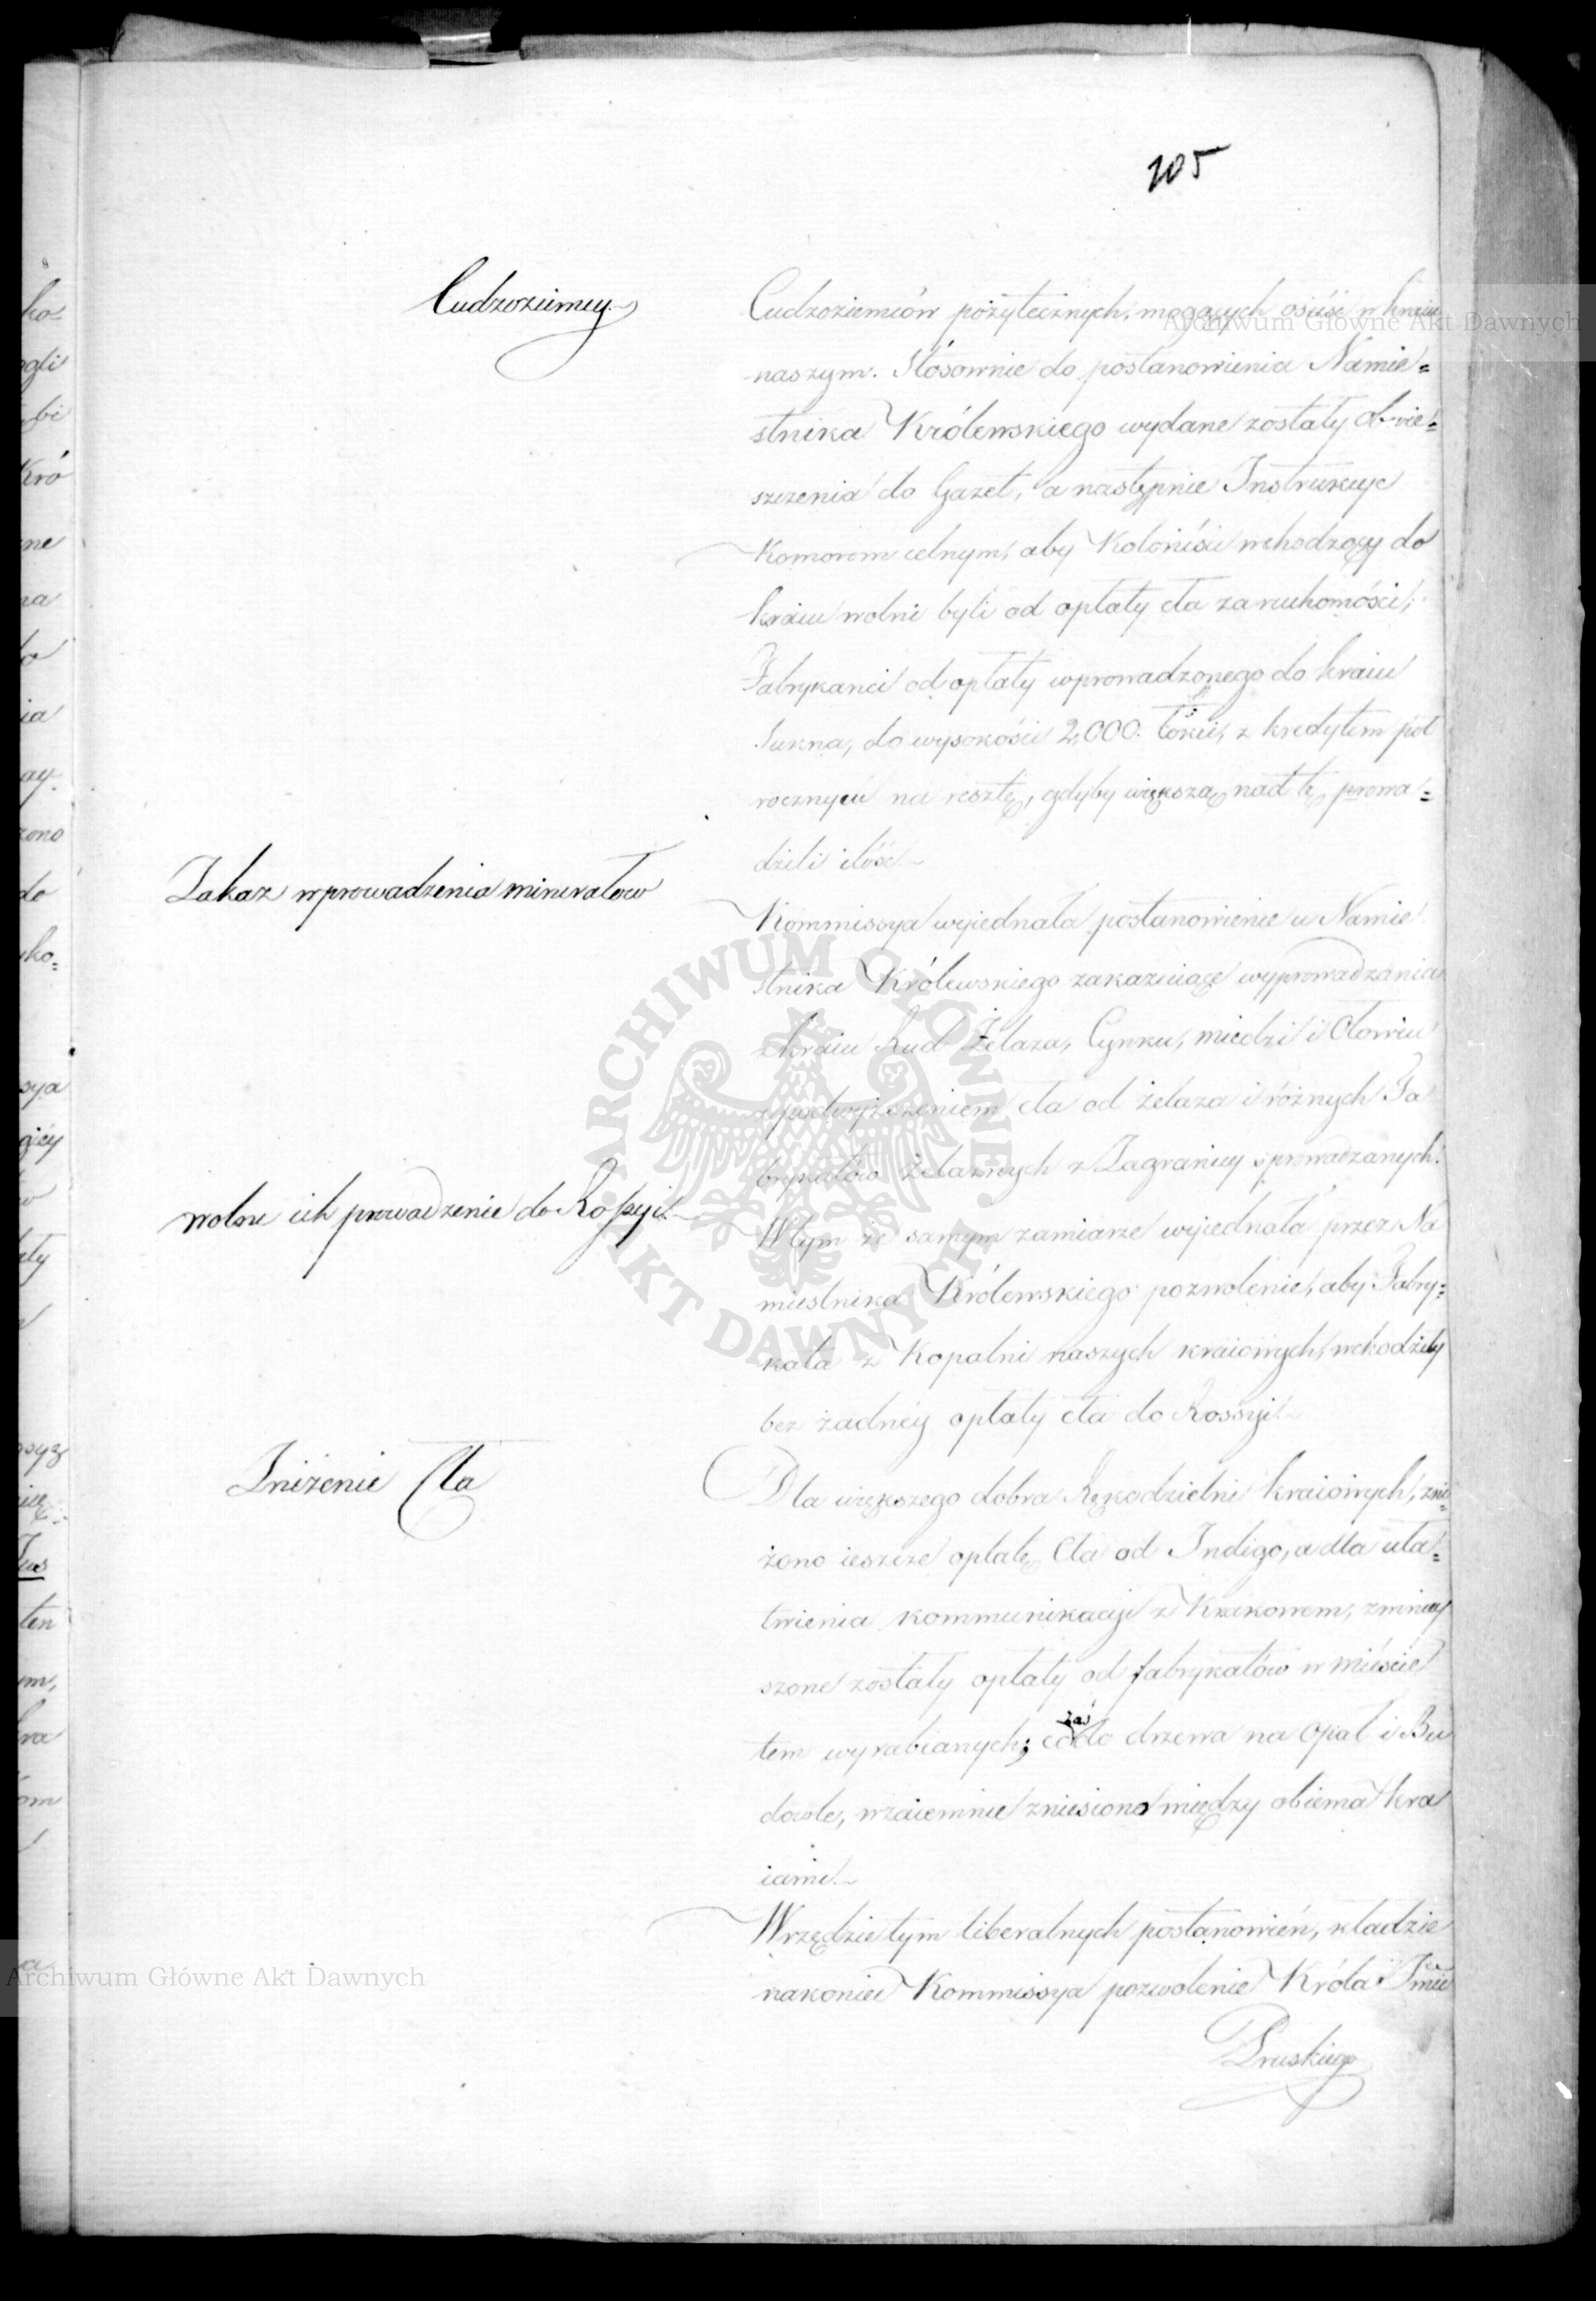 105
Cudzoziemcy.
Cudzoziemców pożytecznych, mogących osieść w kraiu
naszym. Stósownie do postanowienia Namie=
stnika Królewskiego wydane zostały obwie=
szczenia do Gazet, a następnie Instrukcye
Komorom celnym, aby Koloniści wchodzący do
kraiu wolni byli od opłaty cła za ruchomości;
Fabrykanci od opłaty wprowadzonego do kraiu
Sukna, do wysokości 2,000. łokci, z kredytem pół
rocznym na resztę, gdyby większą nad tę prowa=
dzili ilość.
Zakaz wprowadzenia minerałow
Kommissya wyiednała postanowienie u Namie
stnika Królewskiego zakazuiące wyprowadzania
z kraiu Rud Żelaza, Cynku, miedzi i Ołowiu
z podwyższeniem cła od żelaza i różnych Fa
brykatów żelaznych z Zagranicy sprowadzanych.
wolne ich prowadzenie do Rossyi.
W tym że samym zamiarze wyiednała przez Na
miestnika Królewskiego pozwolenie, aby Fabry=
kata z Kopalni naszych kraiowych, wchodziły
bez żadnéy opłaty cła do Rossyi.
Zniżenie Cła
Dla większego dobra Rękodzielni kraiowych, zni=
żono ieszcze opłatę Cła od Indigo, a dla uła=
twienia kommunikacyi z Krakowem, zmniey
szone zostały opłaty od fabrykatów w mieście
tem wyrabianych; co zaś do drzewa na Opał i Bu
dowle, wzaiemnie zniesiono między obiema kra
iami.
W rzędzie tym liberalnych postanowień, kładzie
nakoniec Kommissya pozwolenie Króla Jmci
Pruskiego
Archiwum Główne Akt Dawnych
Archiwum Główne Akt Dawnych
ARCHIWUM GŁÓWNE AKT DAWNYCH